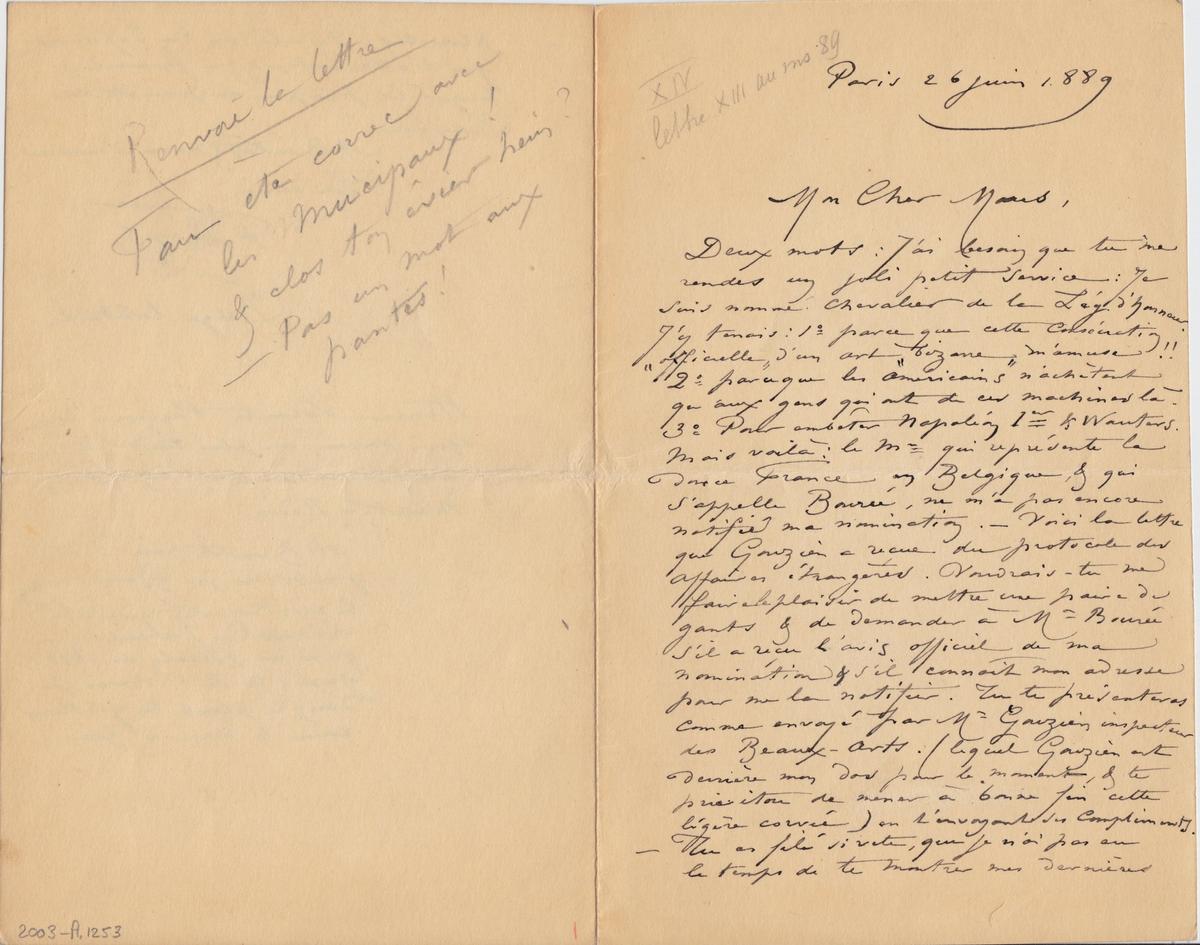 Renvoie la lettre
Faut etre correc avec
les Municipaux !
& clos ton évier hein ?
— Pas un mot aux
pantes !
2003-A.1253
XIV
lettre XIII au ms. 89
Paris 26 juin 1889
Mon Cher Maus,
Deux mots : J'ai besoin que tu me
rendes un joli petit service : Je
suis nommé chevalier de la Lég. d'Honneur.
J'y tenais : 1º parce que cette Consécration
"officielle" d'un art bizarre m'amuse !!
2º parceque les "américains" n'achètent
qu'aux gens qui ont de ces machines là.
3º Pour embêter Napoléon 1er & Wauters.
Mais voilà : le Mr qui représente la
douce France en Belgique, & qui
s'appelle Bourée, ne m'a pas encore
notifié ma nomination. — Voici la lettre
que Gouzien a recue du protocole des
affaires étrangères. Voudrais-tu me
faire le plaisir de mettre une paire de
gants & de demander à Mr Bourée
s'il a recu l'avis officiel de ma
nomination & s'il connaît mon adresse
pour me la notifier. Tu te présenteras
comme envoyé par Mr Gouzien inspecteur
des Beaux-Arts. (lequel Gouzien est
derrière mon dos pour le moment, & te
prie itou de mener à bonne fin cette
légère corvée) en t'envoyant ses compliments.
— Tu as filé si vite, que je n'ai pas eu
le temps de te montrer mes dernières